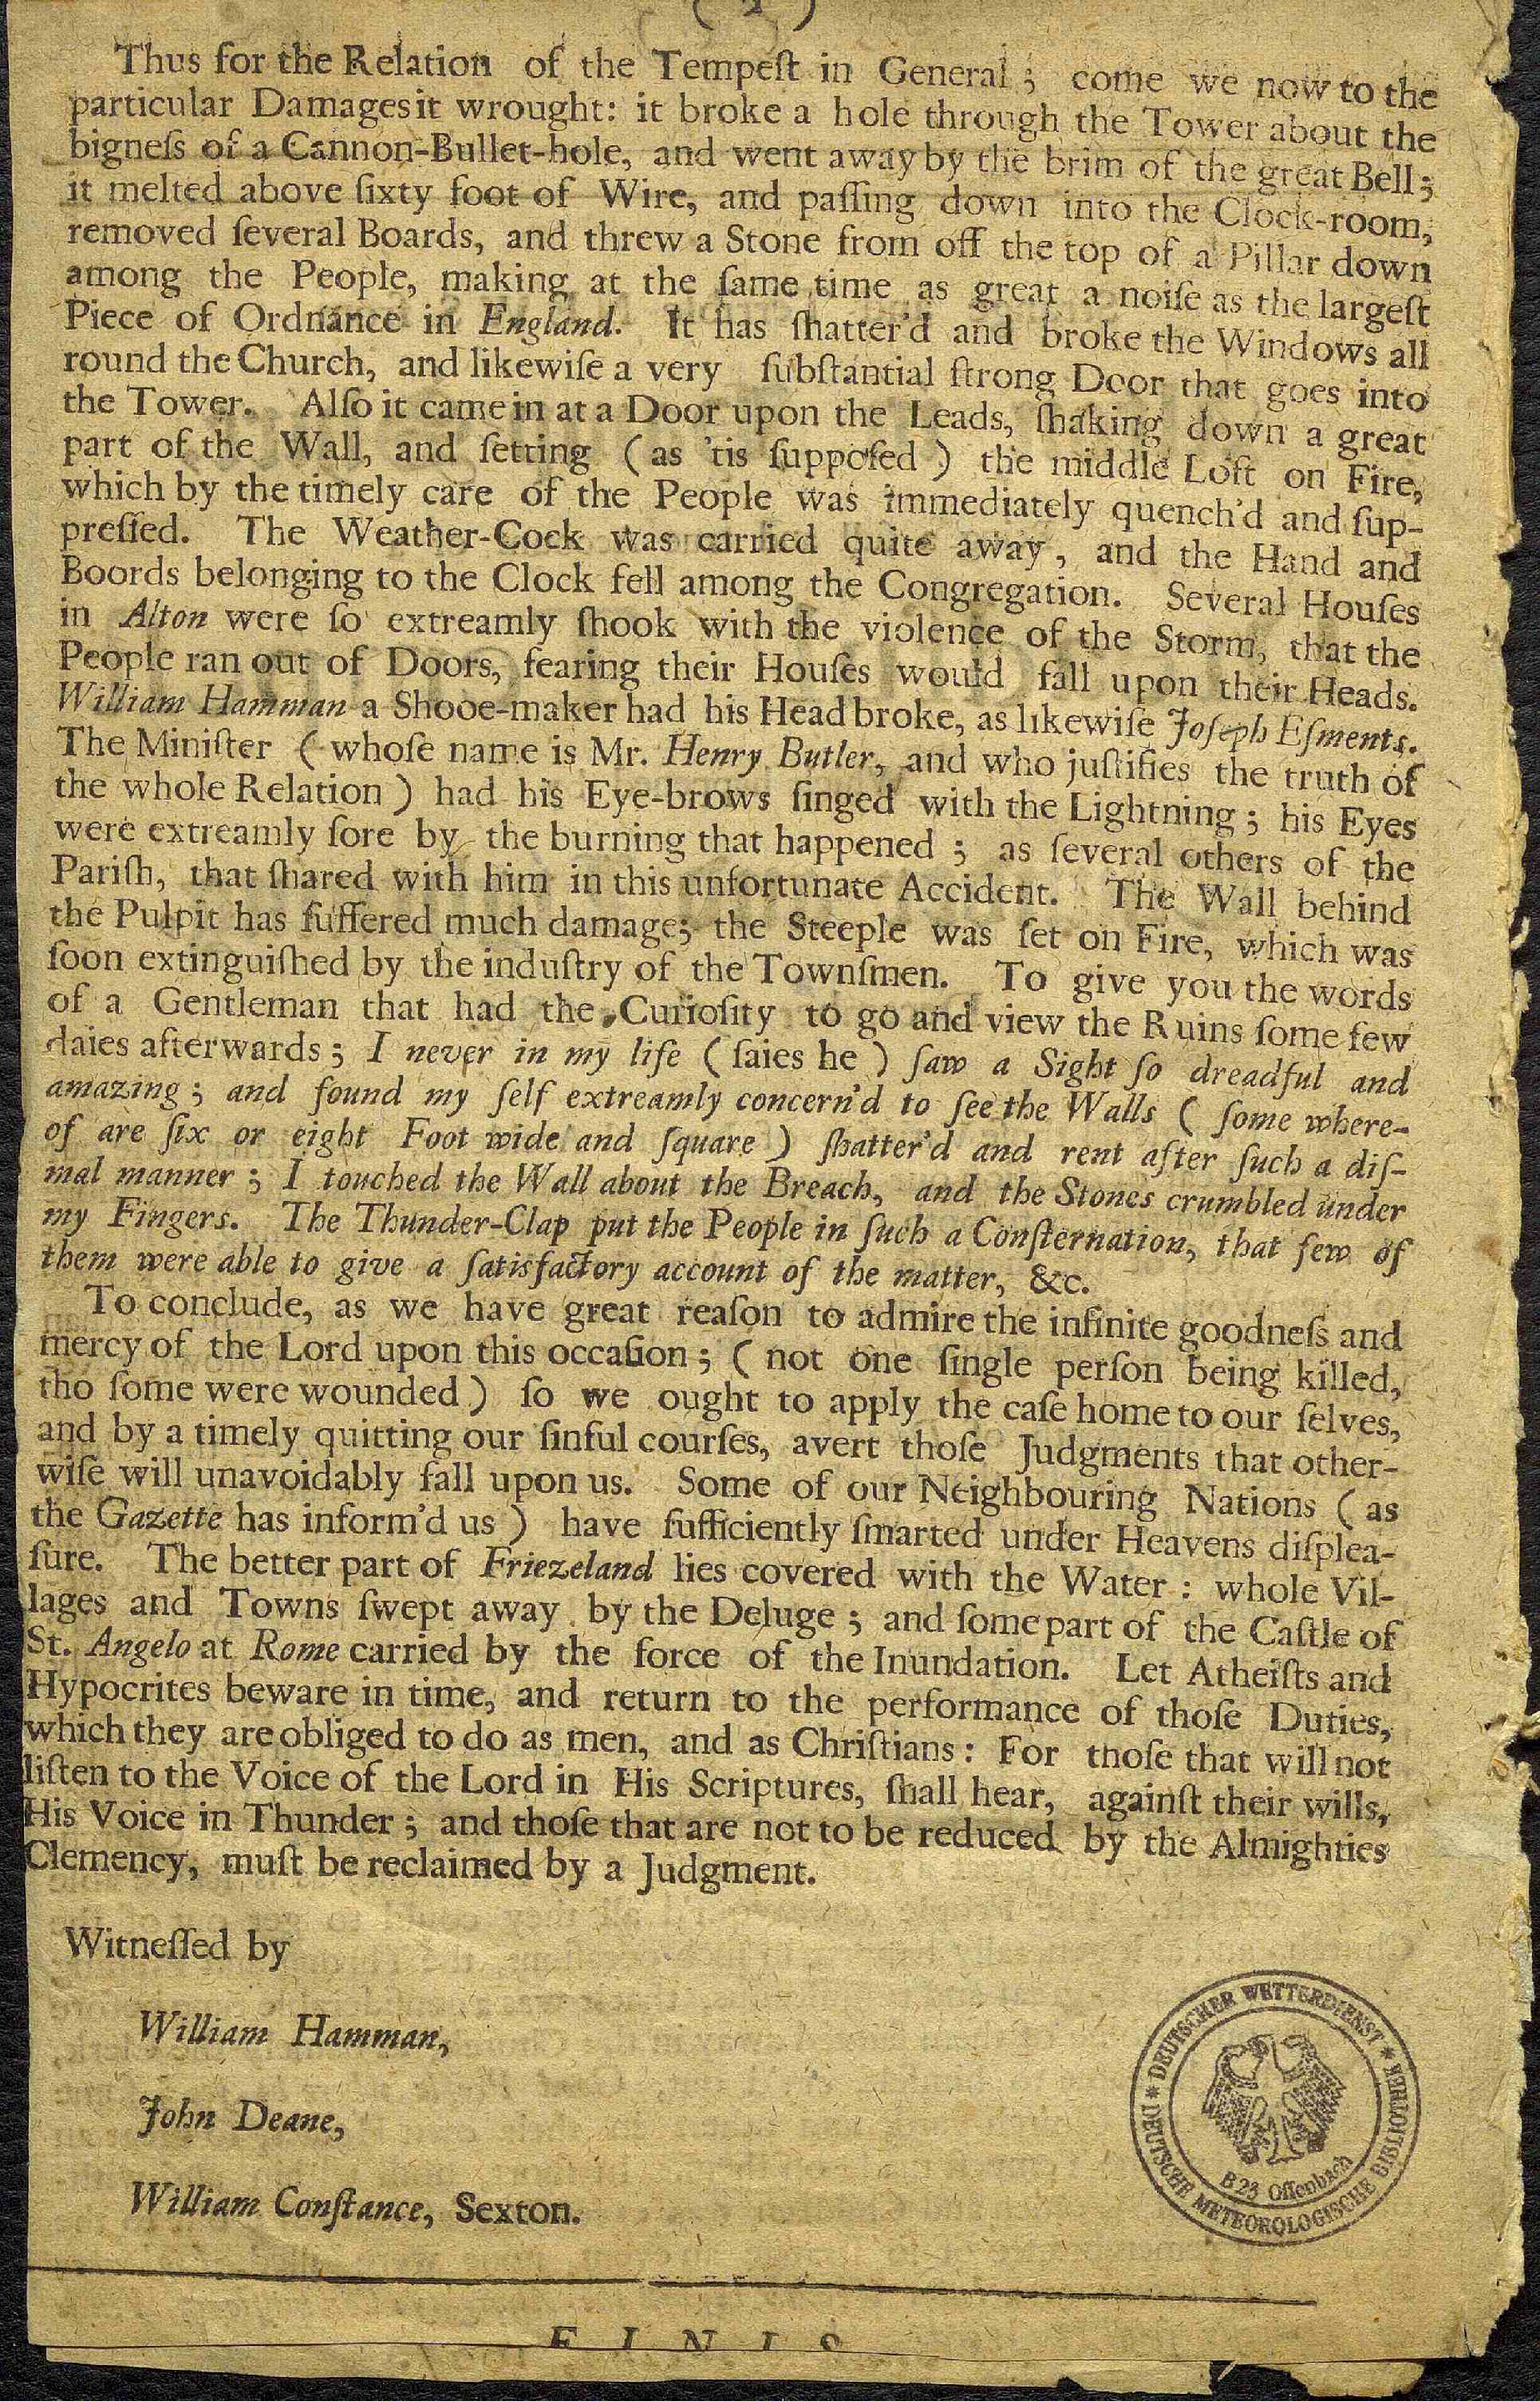 ( 2 )
Thus for the Relation of the Tempeſt in General ; come we now to the
particular Damages it wrought: it broke a hole through the Tower about the
bigneſs of a Cannon-Bullet-hole, and went away by the brim of the great Bell ;
it melted above ſixty foot of Wire, and paſſing down into the Clock-room,
removed ſeveral Boards, and threw a Stone from off the top of a Pillar down
among the People, making at the ſame time as great a noiſe as the largeſt
Piece of Ordnance in England. It has ſhatter'd and broke the Windows all
round the Church, and likewiſe a very ſubſtantial ſtrong Door that goes into
the Tower. Alſo it came in at a Door upon the Leads, ſhaking down a great
part of the Wall, and ſetting ( as 'tis ſuppoſed ) the middle Loft on Fire,
which by the timely care of the People was immediately quench'd and ſup-
preſſed. The Weather-Cock was carried quite away, and the Hand and
Boords belonging to the Clock fell among the Congregation. Several Houſes
in Alton were ſo extreamly ſhook with the violence of the Storm, that the
People ran out of Doors, fearing their Houſes would fall upon their Heads.
William Hamman a Shooe-maker had his Head broke, as likewiſe Joſeph Eſments.
The Miniſter ( whoſe name is Mr. Henry Butler, and who juſtifies the truth of
the whole Relation ) had his Eye-brows ſinged with the Lightning ; his Eyes
were extreamly ſore by the burning that happened ; as ſeveral others of the
Pariſh, that ſhared with him in this unfortunate Accident. The Wall behind
the Pulpit has ſuffered much damage; the Steeple was ſet on Fire, which was
ſoon extinguiſhed by the induſtry of the Townſmen. To give you the words
of a Gentleman that had the Curioſity to go and view the Ruins ſome few
daies afterwards ; I never in my life ( ſaies he ) ſaw a Sight ſo dreadful and
amazing ; and found my ſelf extreamly concern'd to ſee the Walls ( ſome where-
of are ſix or eight Foot wide and ſquare ) ſhatter'd and rent after ſuch a diſ-
mal manner ; I touched the Wall about the Breach, and the Stones crumbled under
my Fingers. The Thunder-Clap put the People in ſuch a Conſternation, that few of
them were able to give a ſatisfactory account of the matter, &c.
To conclude, as we have great reaſon to admire the infinite goodneſs and
mercy of the Lord upon this occaſion ; ( not one ſingle perſon being killed,
tho ſome were wounded ) ſo we ought to apply the caſe home to our ſelves,
and by a timely quitting our ſinful courſes, avert thoſe Judgments that other-
wiſe will unavoidably fall upon us. Some of our Neighbouring Nations ( as
the Gazette has inform'd us ) have ſufficiently ſmarted under Heavens diſplea-
ſure. The better part of Friezeland lies covered with the Water : whole Vil-
lages and Towns ſwept away by the Deluge ; and ſome part of the Caſtle of
St. Angelo at Rome carried by the force of the Inundation. Let Atheiſts and
Hypocrites beware in time, and return to the performance of thoſe Duties,
which they are obliged to do as men, and as Chriſtians : For thoſe that will not
liſten to the Voice of the Lord in His Scriptures, ſhall hear, againſt their wills,
His Voice in Thunder ; and thoſe that are not to be reduced by the Almighties
Clemency, muſt be reclaimed by a Judgment.
Witneſſed by
William Hamman,
John Deane,
William Conſtance, Sexton.
* DEUTSCHER WETTERDIENST *
DEUTSCHE METEOROLOGISCHE BIBLIOTHEK
B 23 Offenbach
FINIS